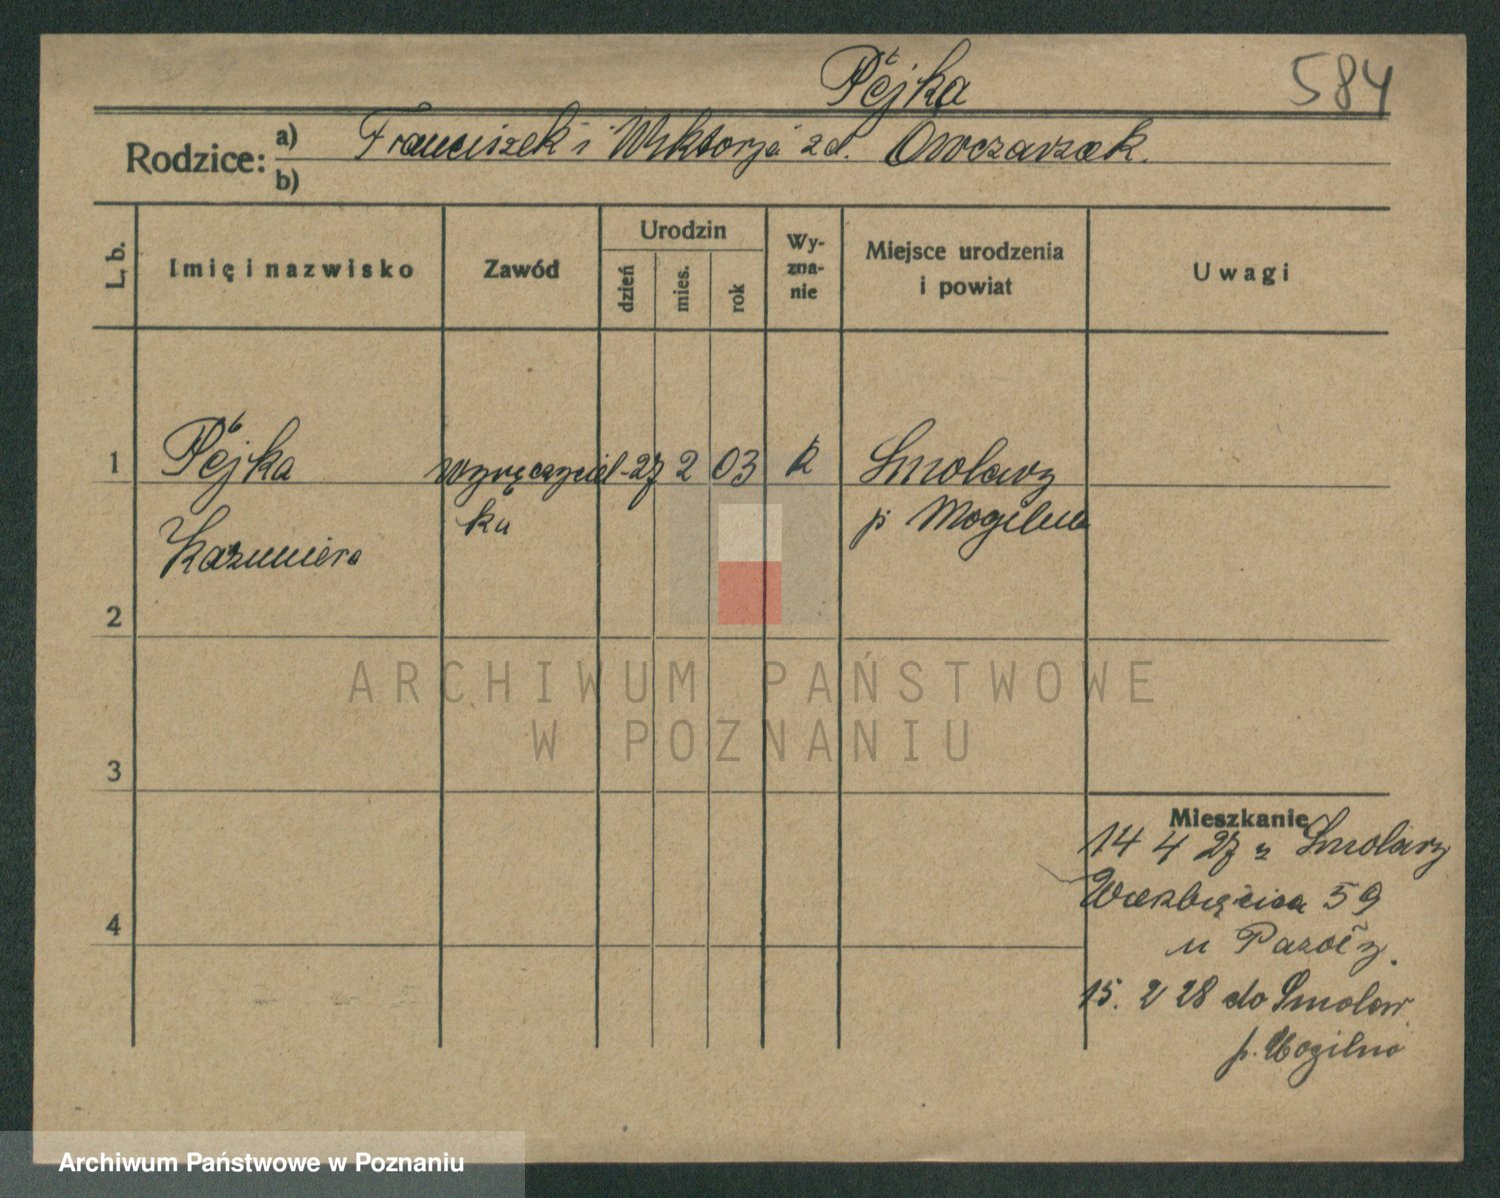 Pójka 584
Rodzice: a) Franciszek i Wiktorja zd. Owczarzak.
b)
L. b. Imię i nazwisko Zawód Urodzin dzień mies. rok Wy-zna-nie Miejsce urodzenia i powiat Uwagi
1 Pójka wyręczyciel- 27 2 03 k Smolary
Kazimiera ka p Mogilno
2
3
4
Mieszkanie
14 4 27 z Smolary
Wierzbięcice 59
u
15. 2 28 do Smolar
p. Mogilno
ARCHIWUM PAŃSTWOWE
W POZNANIU
Archiwum Państwowe w Poznaniu